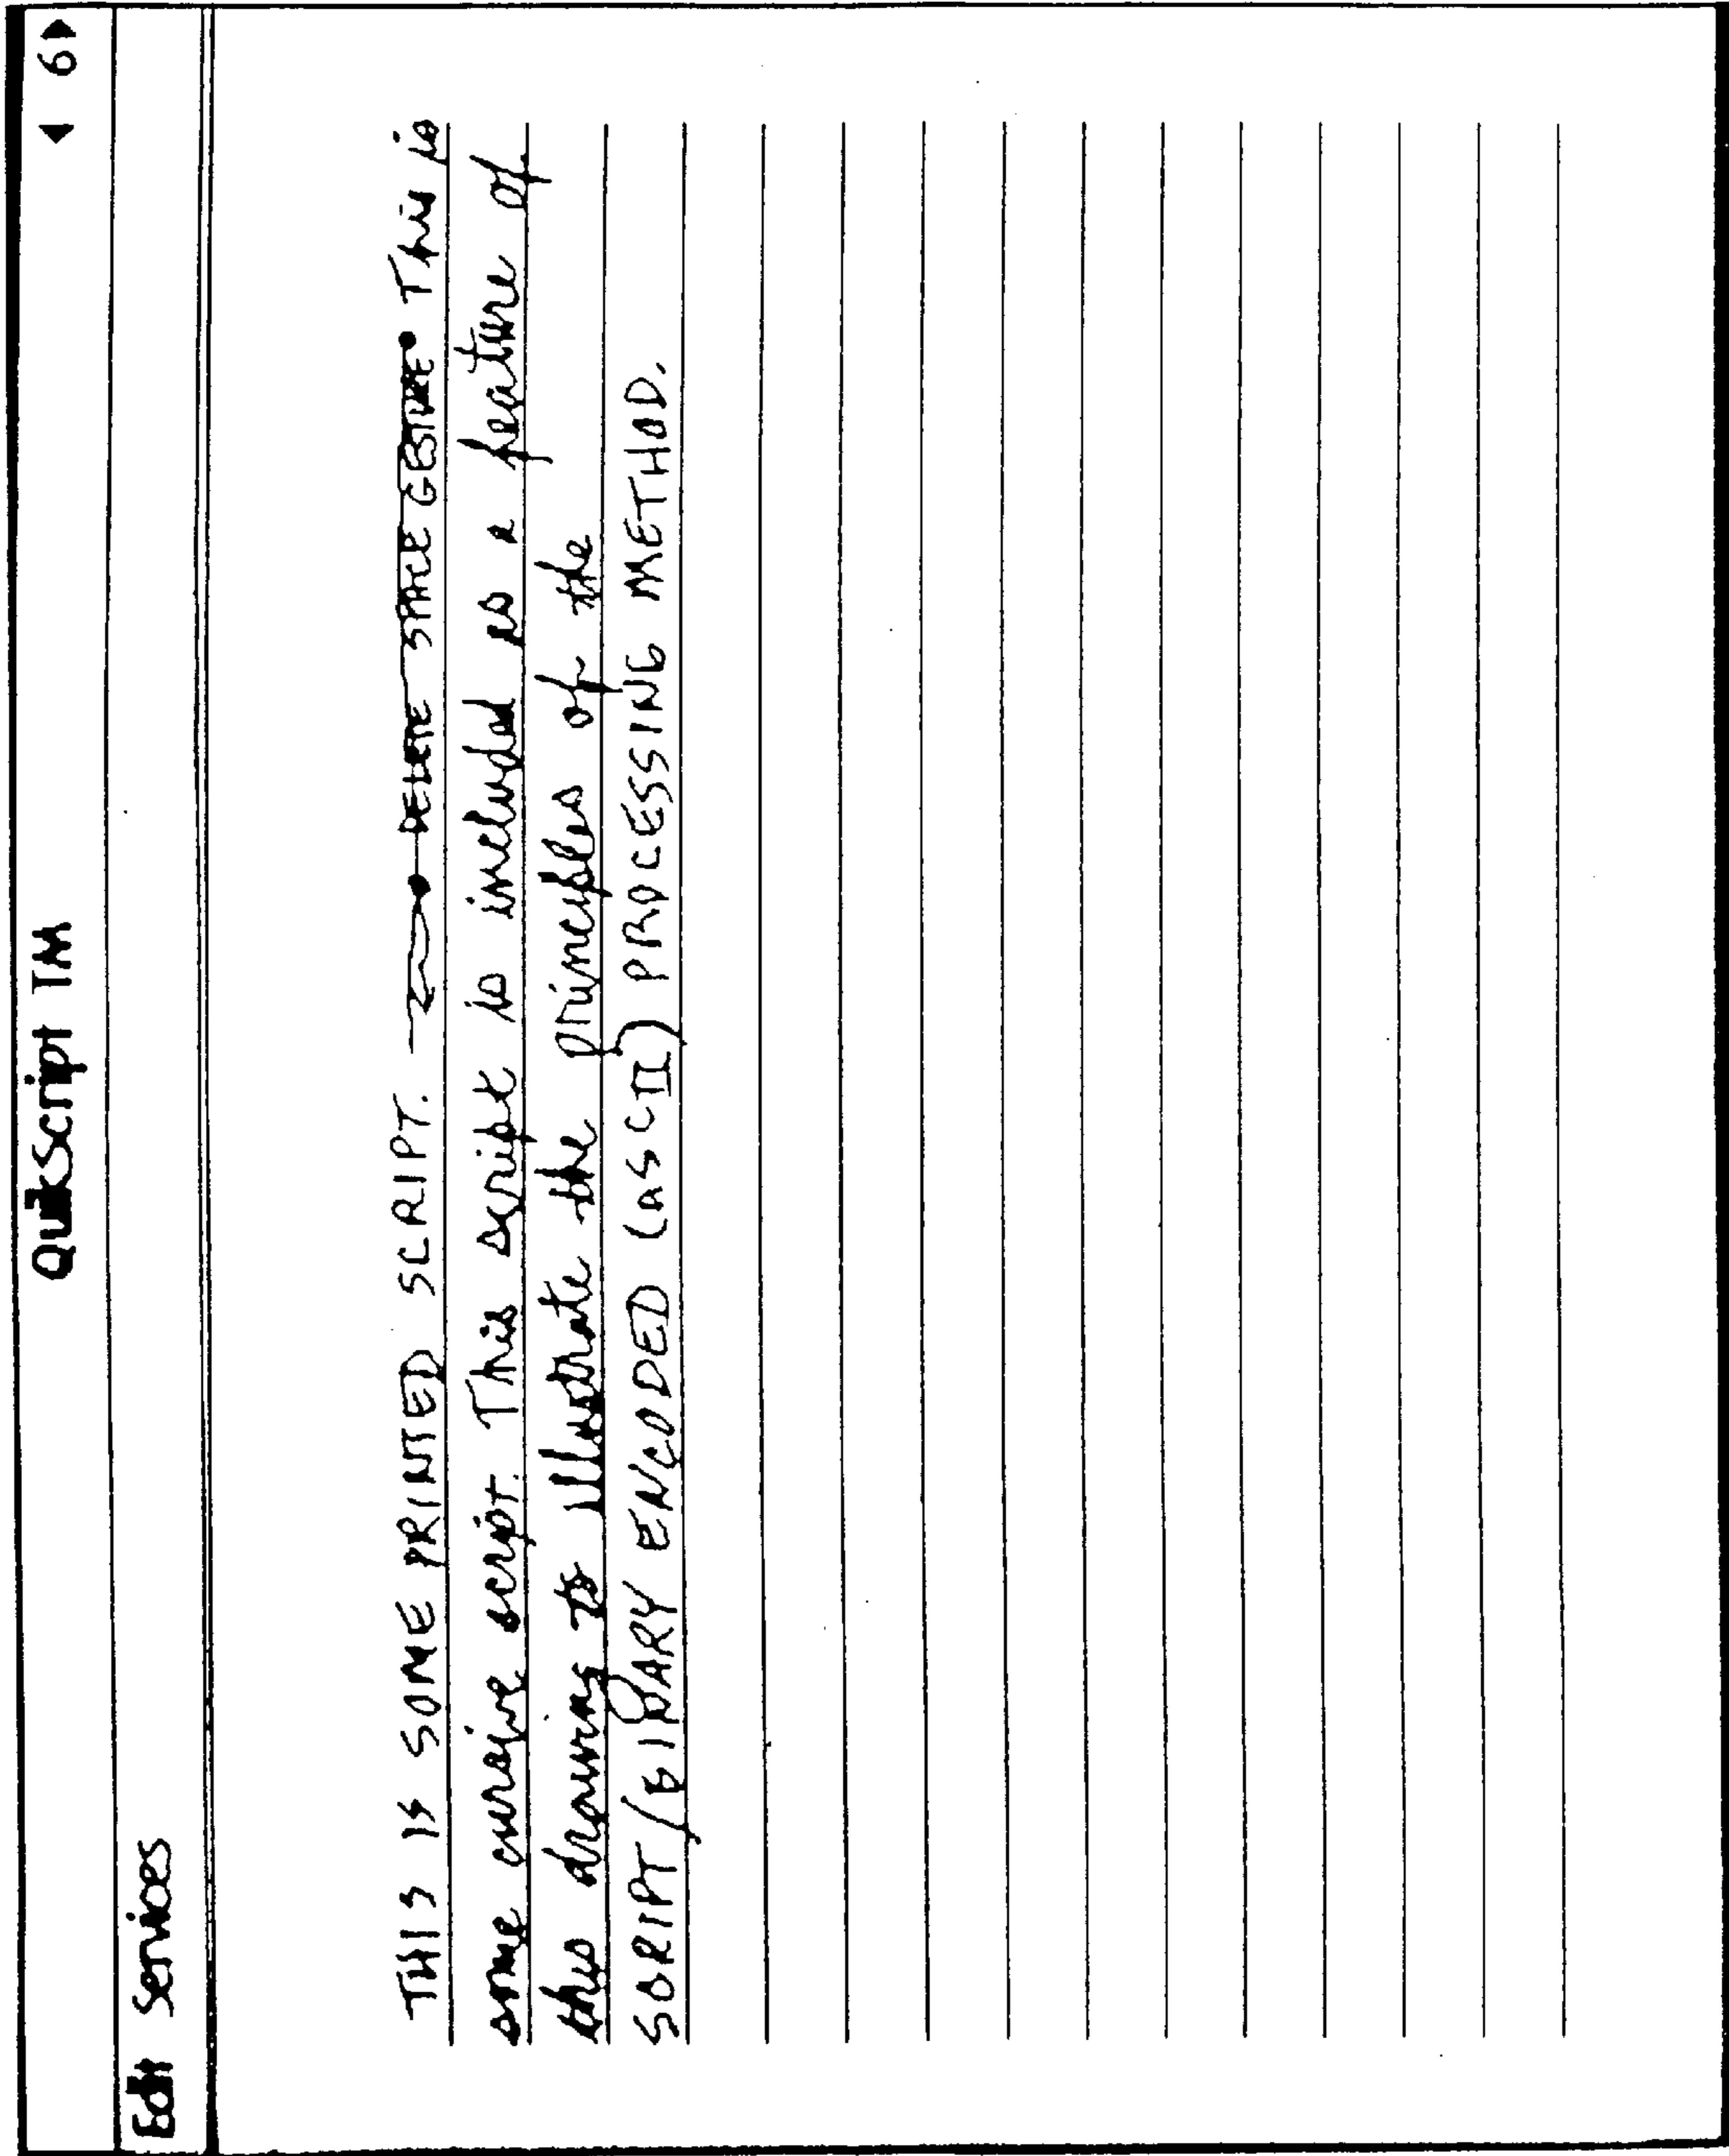 QuikScript TM ◄ 6 ►
Edit Services
THIS IS SOME PRINTED SCRIPT. DELETE SPACE GESTURE This is
some cursive script. This script is included as a feature of
this drawing to illustrate the principles of the
SCRIPT/BINARY ENCODED (ASCII) PROCESSING METHOD.